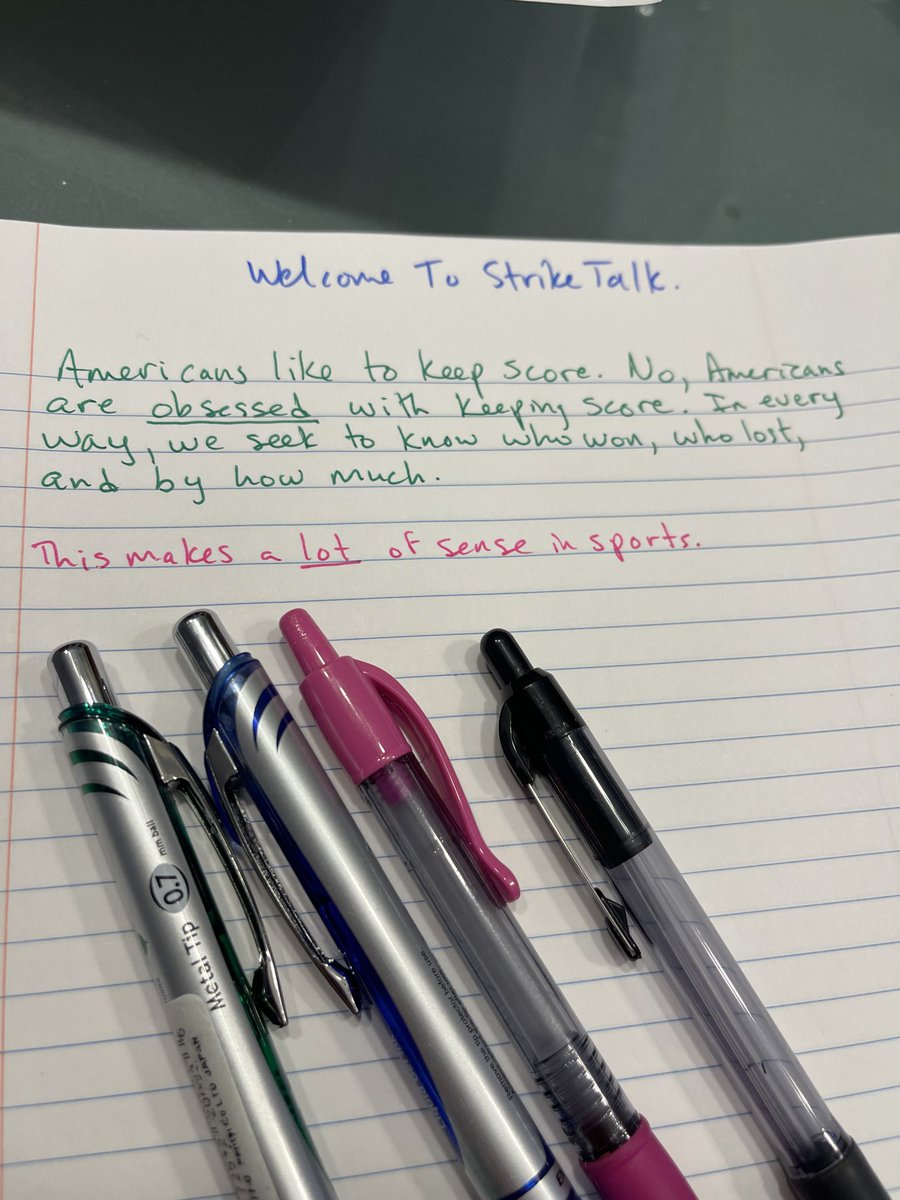 Welcome To StrikeTalk.
Americans like to keep score. No, Americans
are obsessed with keeping score. In every
way, we seek to know who won, who lost,
and by how much.
This makes a lot of sense in sports.
mm ball
0.7
Metal Tip
Remove the tip protector before use